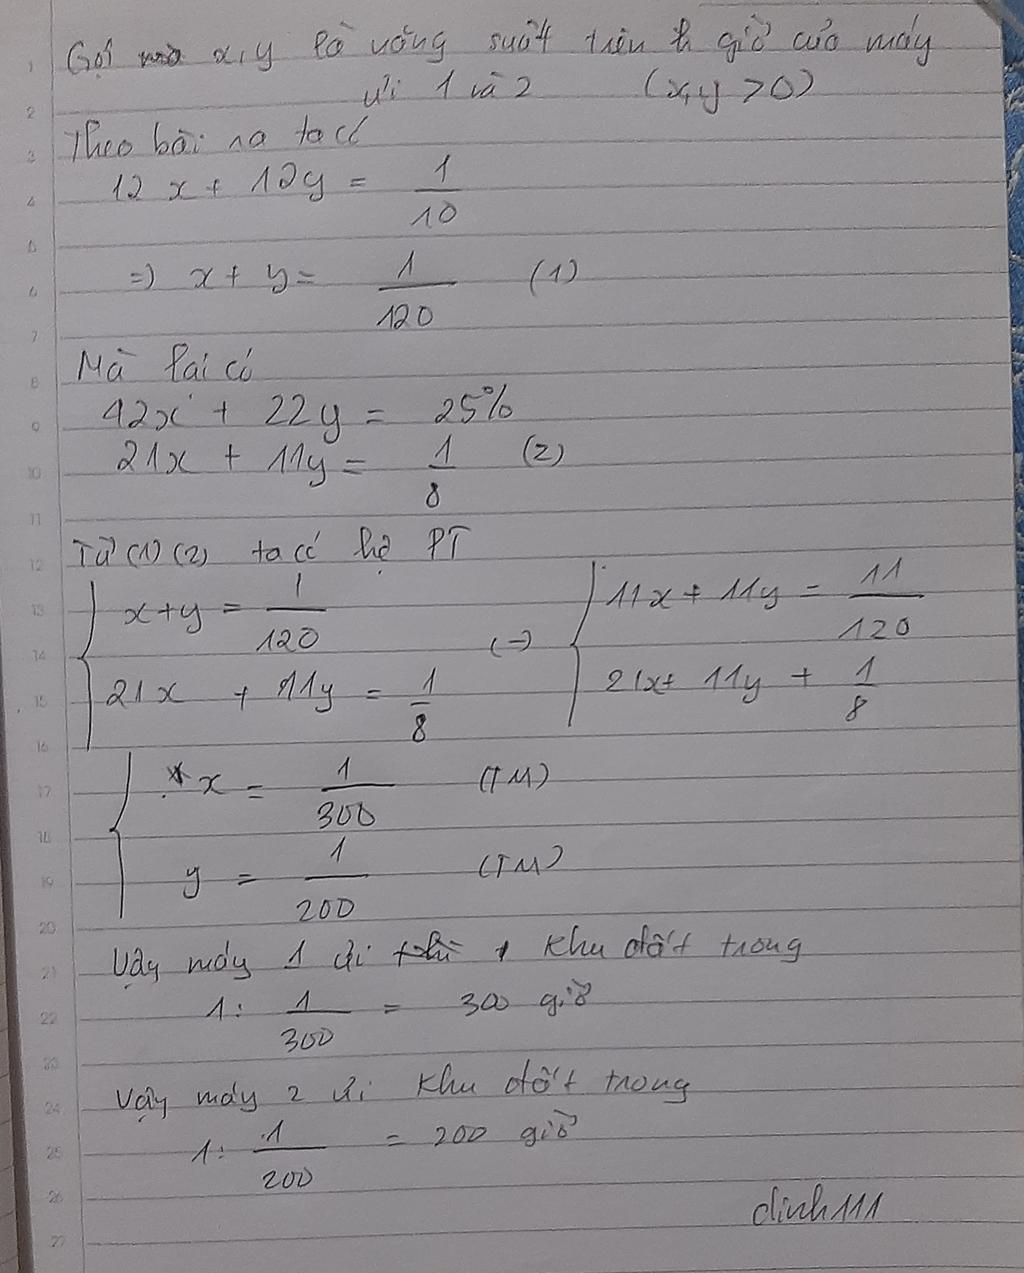 Gọi x, y là năng suất trên h giờ của máy
ủi 1 và 2 (x,y > 0)
Theo bài ra ta có
12x + 12y = 1/10
=> x + y = 1/120 (1)
Mà lại có
42x + 22y = 25%
21x + 11y = 1/8 (2)
Từ (1) (2) ta có hệ PT
{ x+y = 1/120 (-) { 11x + 11y = 11/120
21x + 11y = 1/8 21x+ 11y + 1/8
{ x = 1/300 (TM)
y = 1/200 (TM)
Vậy máy 1 ủi thì 1 khu đất trong
1: 1/300 = 300 giờ
Vậy máy 2 ủi khu đất trong
1: 1/200 = 200 giờ
dinh111